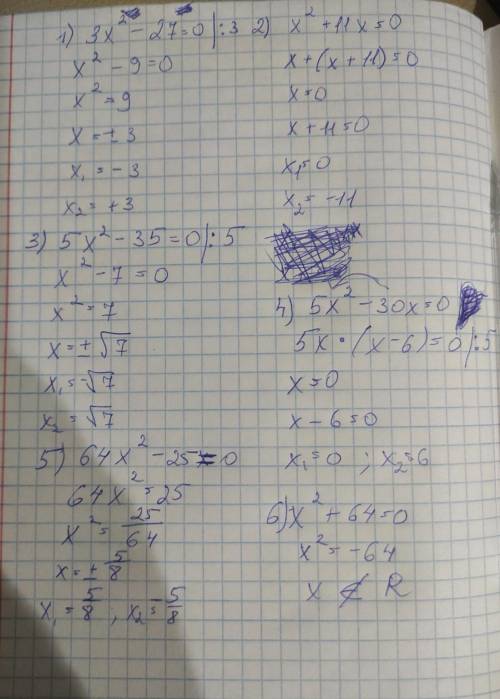 1) 3x² - 27 = 0 |:3
x² - 9 = 0
x² = 9
x = ± 3
x₁ = - 3
x₂ = + 3
2) x² + 11x = 0
x + (x + 11) = 0
x = 0
x + 11 = 0
x₁ = 0
x₂ = -11
3) 5x² - 35 = 0 |:5
x² - 7 = 0
x² = 7
x = ± √7
x₁ = -√7
x₂ = √7
4) 5x² - 30x = 0
5x · (x - 6) = 0 |:5
x = 0
x - 6 = 0
x₁ = 0 ; x₂ = 6
5) 64x² - 25 = 0
64x² = 25
x² = 25/64
x = ± 5/8
x₁ = 5/8 , x₂ = -5/8
6) x² + 64 = 0
x² = -64
x ∉ R